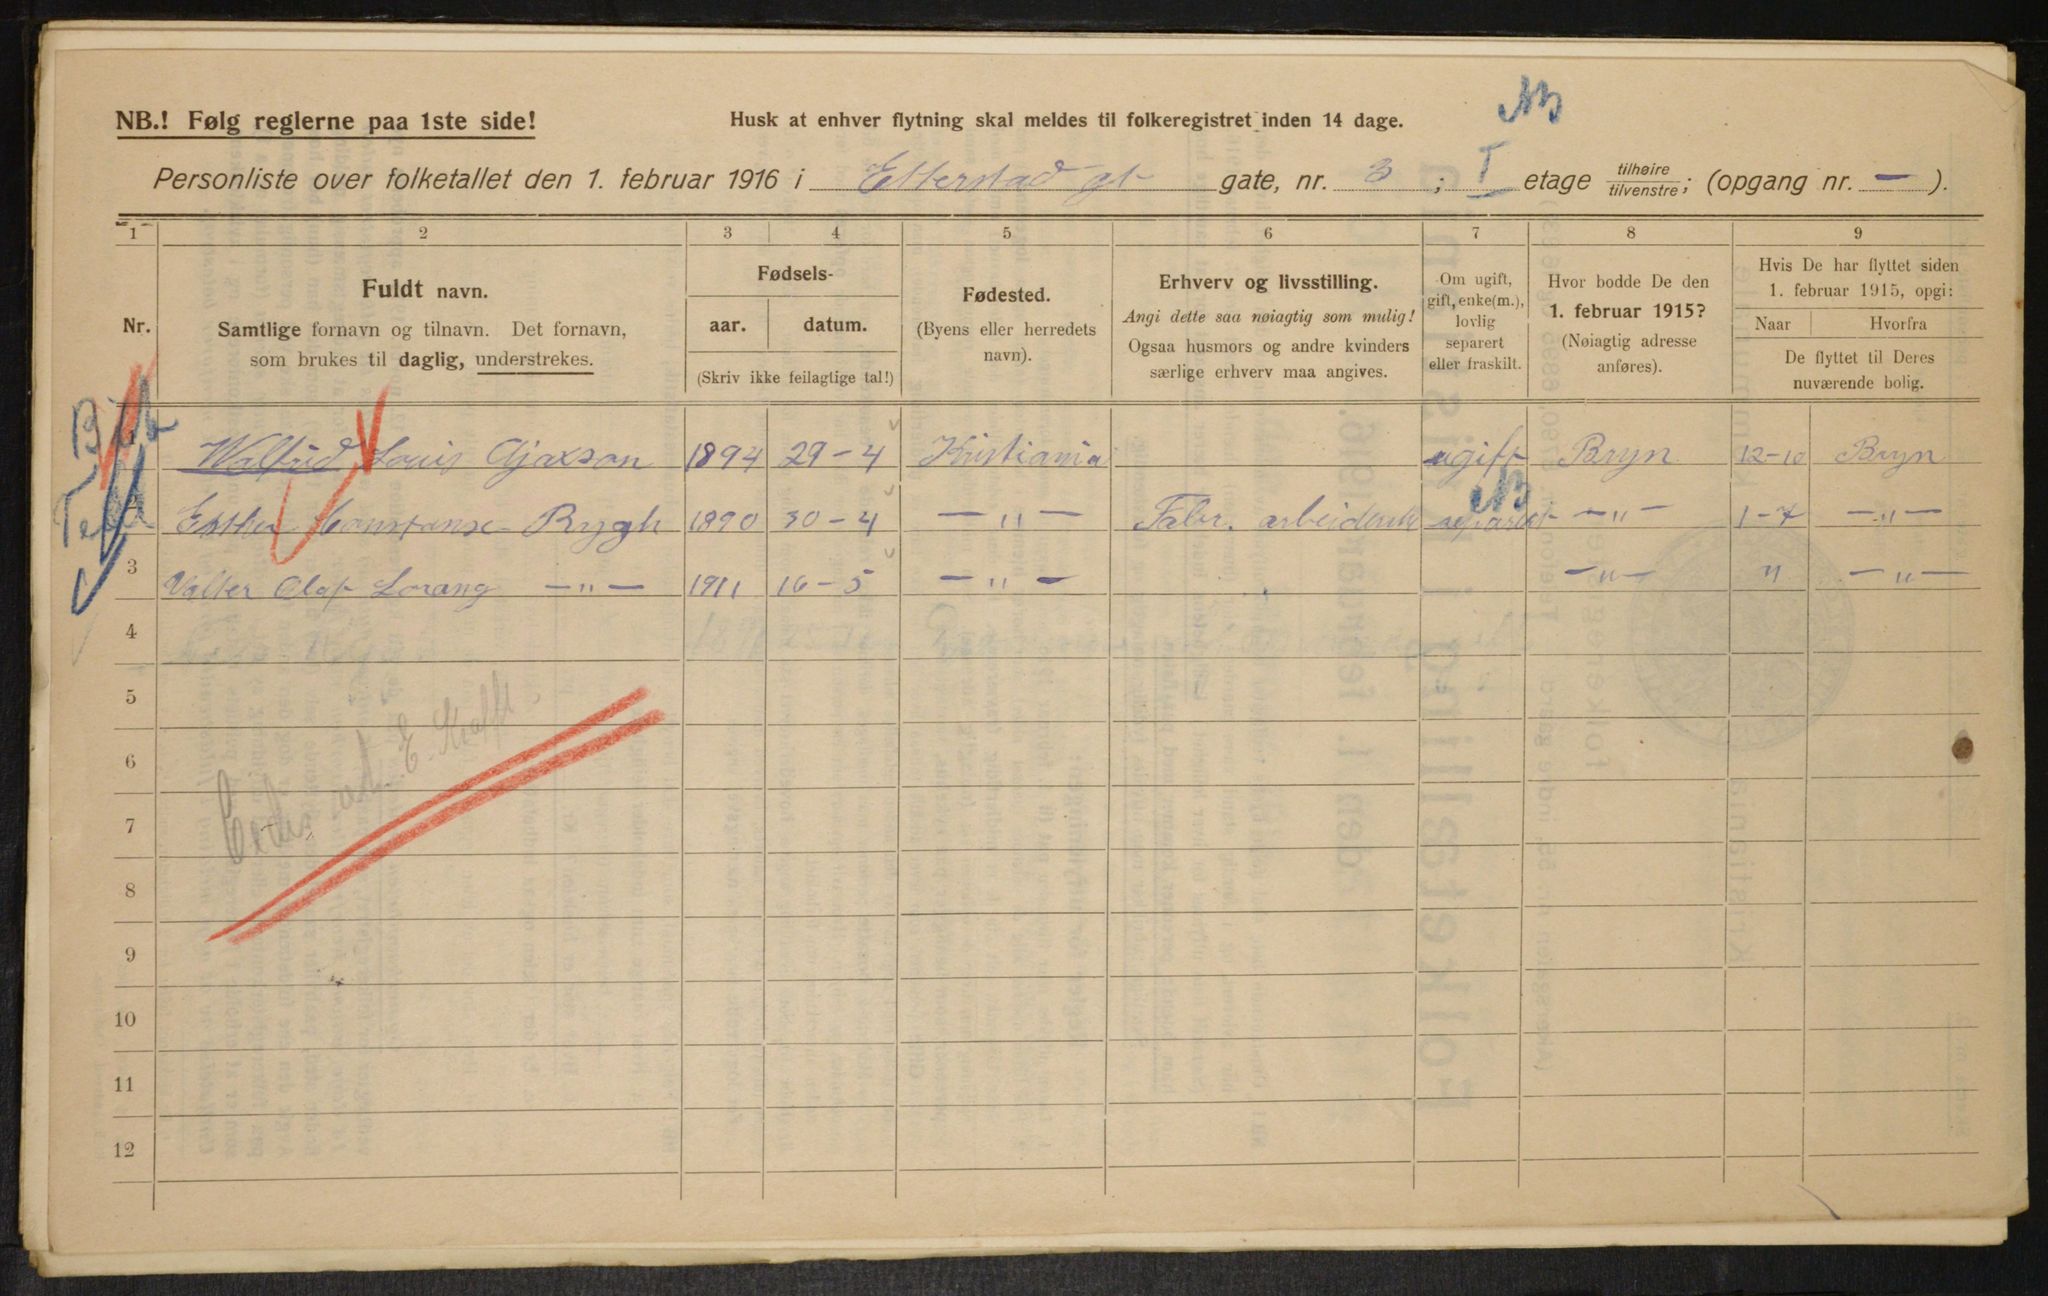 NB
NB.! Følg reglerne paa 1ste side! Husk at enhver flytning skal meldes til folkeregistret inden 14 dage.
Personliste over folketallet den 1. februar 1916 i Etterstad gt gate, nr. 3 ; I etage tilhøire tilvenstre; (opgang nr. — ).
1 2 3 4 5 6 7 8 9
Nr.
Fuldt navn.
Samtlige fornavn og tilnavn. Det fornavn,
som brukes til daglig, understrekes.
Fødsels-
aar. datum.
(Skriv ikke feilagtige tal!)
Fødested.
(Byens eller herredets
navn).
Erhverv og livsstilling.
Angi dette saa nøiagtig som mulig!
Ogsaa husmors og andre kvinders
særlige erhverv maa angives.
Om ugift,
gift, enke(m.),
lovlig
separert
eller fraskilt.
Hvor bodde De den
1. februar 1915?
(Nøiagtig adresse
anføres).
Hvis De har flyttet siden
1. februar 1915, opgi:
Naar Hvorfra
De flyttet til Deres
nuværende bolig.
Walfrid Louis Ajaxson 1894 29-4 Kristiania ugift Bryn 12-10 Bryn
NB
Esther Constanse Rygh 1890 30-4 —"— Fabr. arbeiderske separert —"— 1-7 —"—
3 Valter Olaf Lorang —"— 1911 16-5 —"— —"— " —"—
4
5
6
7
8
9
10
11
12
E. Krafft